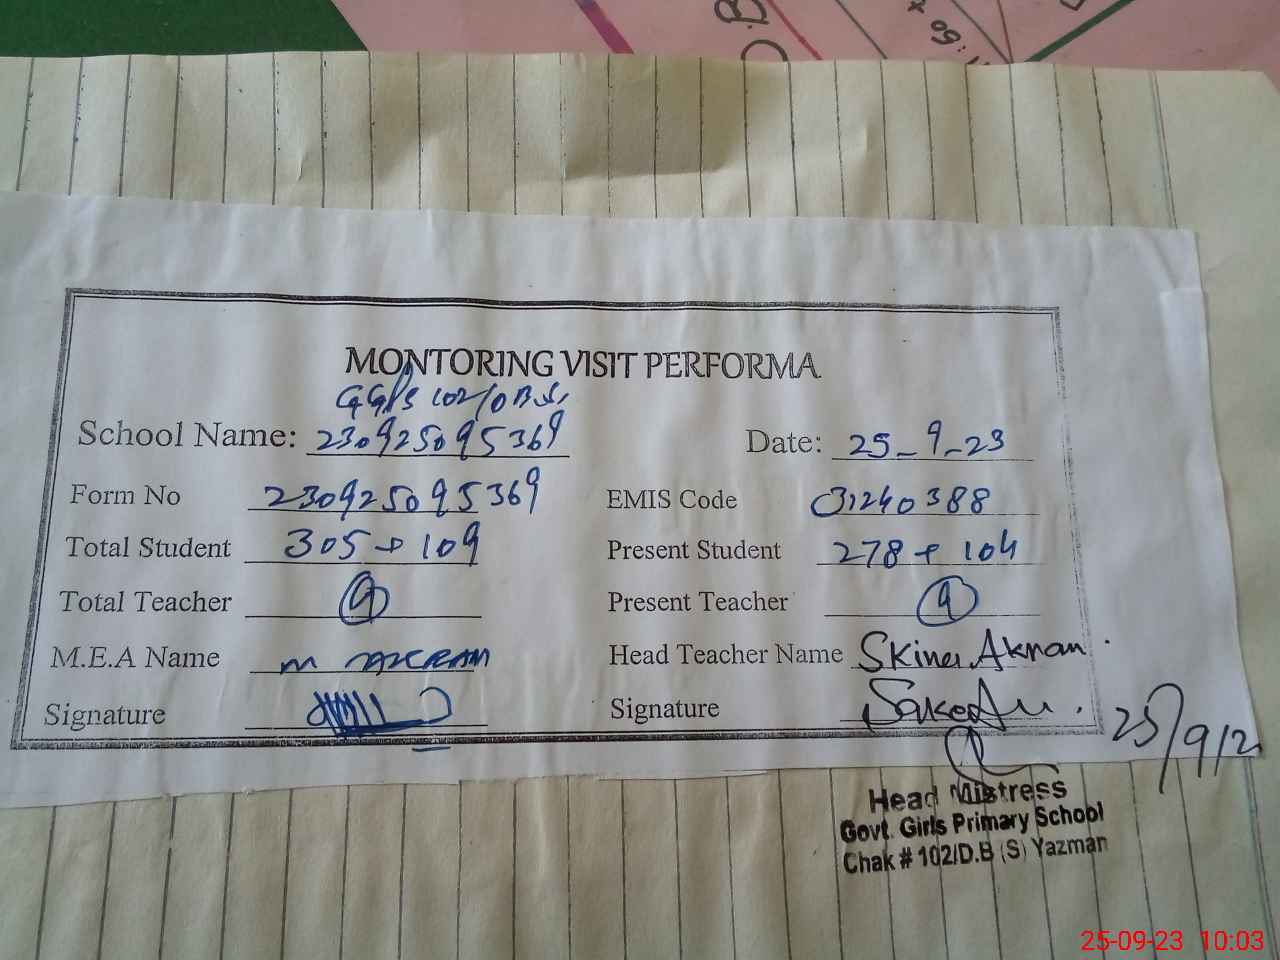 MONTORING VISIT PERFORMA
GGPS 102/DB S
School Name: 230925095369 Date: 25-9-23
Form No 230925095369 EMIS Code 31240388
Total Student 305 + 109 Present Student 278 + 104
Total Teacher 9 Present Teacher 9
M.E.A Name M Head Teacher Name
Signature Signature
25/9/2
Head Mistress
Govt. Girls Primary School
Chak # 102/D.B (S) Yazman
25-09-23 10:03